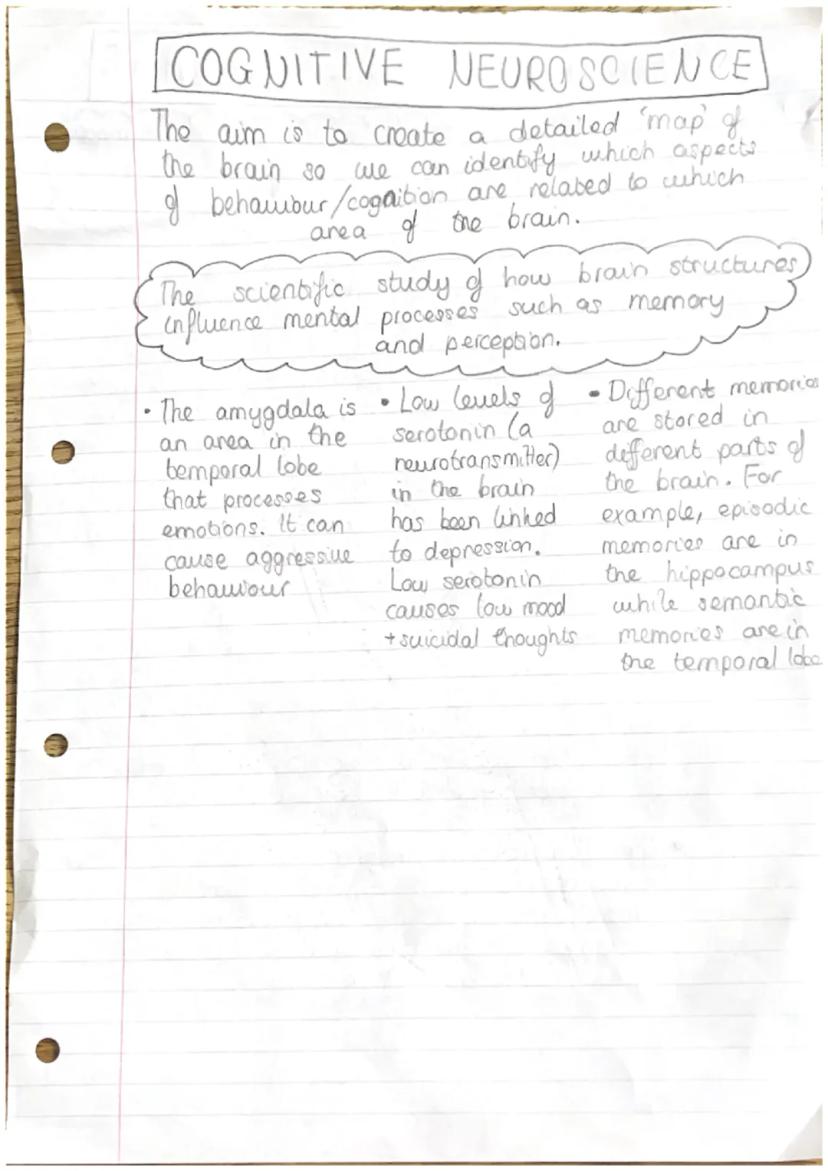 COGNITIVE NEUROSCIENCE
The aim is to create a detailed 'map' of
the brain so we can identify which aspects
of behaviour/cognition are related to which
area of the brain.
The scientific study of how brain structures
influence mental processes such as memory
and perception.
• The amygdala is
an area in the
temporal lobe
that processes
emotions. It can
cause aggressive
behaviour
• Low levels of
serotonin (a
neurotransmitter)
in the brain
has been linked
to depression.
Low serotonin
causes low mood
+ suicidal thoughts
• Different memories
are stored in
different parts of
the brain. For
example, episodic
memories are in
the hippocampus
while semantic
memories are in
the temporal lobe